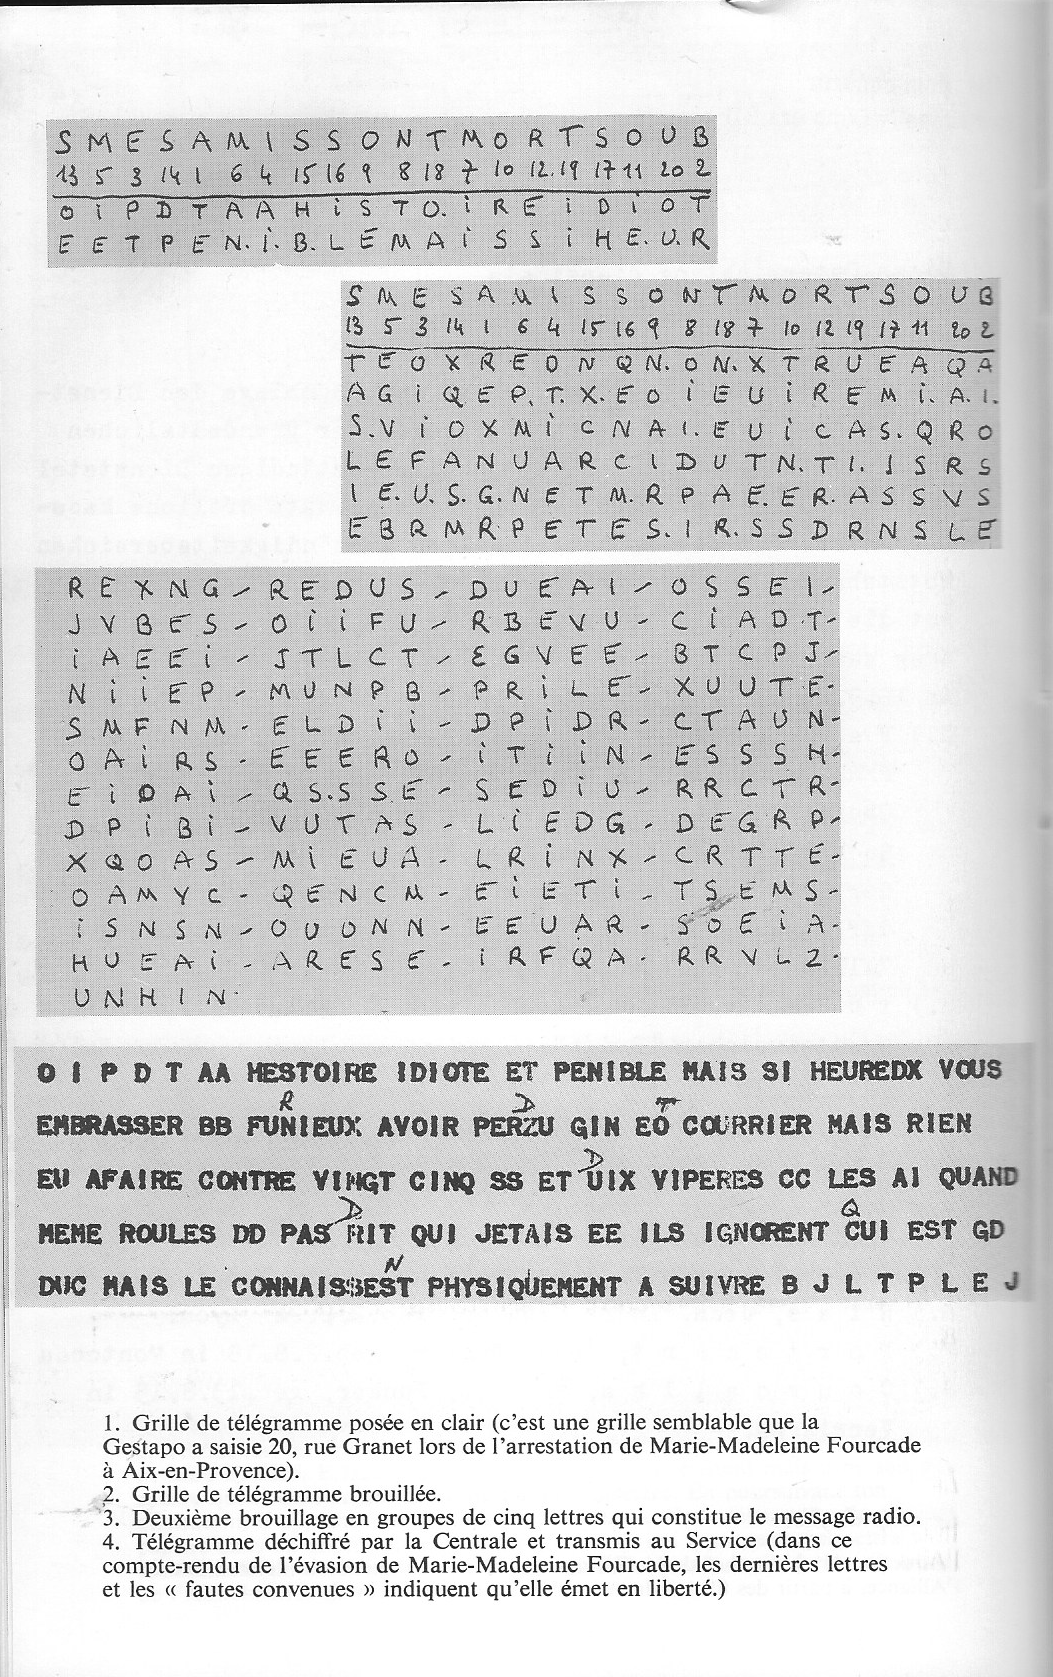 S M E S A M I S S O N T M O R T S O U B
13 5 3 14 1 6 4 15 16 9 8 18 7 10 12. 19 17 11 20 2
O i P D T A A H i S T O. i R E i D i O T
E E T P E N. i. B. L E M A i S S i H E. U. R
S M E S A M I S S O N T M O R T S O U B
13 5 3 14 1 6 4 15 16 9 8 18 7 10 12 19 17 11 20 2
T E O X R E O N Q N. O N. X T R U E A Q A
A G i Q E P. T. X. E O i E U i R E M i. A. I.
S. V i O X M i C N A I. E U i C A S. Q R O
L E F A N U A R C I D U T N. T I. I S R S
I E. U. S. G. N E T M. R P A E. E R. A S S V S
E B R M R P E T E S. I R. S S D R N S L E
R E X N G - R E D U S - D U E A I - O S S E I -
J V B E S - O i i F U - R B E V U - C i A D T -
i A E E i - J T L C T - E G V E E - B T C P J -
N i i E P - M U N P B - P R i L E - X U U T E -
S M F N M - E L D i i - D P i D R - C T A U N -
O A i R S - E E E R O - i T i i N - E S S S H -
E i D A i - Q S. S S E - S E D i U - R R C T R -
D P i B i - V U T A S - L i E D G - D E G R P -
X Q O A S - M i E U A - L R i N X - C R T T E -
O A M Y C - Q E N C M - E i E T i - T S E M S -
i S N S N - O U O N N - E E U A R - S O E i A -
H U E A i - A R E S E - i R F Q A - R R V L 2 -
U N H I N
O I P D T AA HESTOIRE IDIOTE ET PENIBLE MAIS SI HEUREDX VOUS
R D T
EMBRASSER BB FUNIEUX AVOIR PERZU GIN EO COURRIER MAIS RIEN
D
EU AFAIRE CONTRE VINGT CINQ SS ET UIX VIPERES CC LES AI QUAND
D Q
MEME ROULES DD PAS RIT QUI JETAIS EE ILS IGNORENT CUI EST GD
N
DUC MAIS LE CONNAISSEST PHYSIQUEMENT A SUIVRE B J L T P L E J
1. Grille de télégramme posée en clair (c'est une grille semblable que la
Gestapo a saisie 20, rue Granet lors de l'arrestation de Marie-Madeleine Fourcade
à Aix-en-Provence).
2. Grille de télégramme brouillée.
3. Deuxième brouillage en groupes de cinq lettres qui constitue le message radio.
4. Télégramme déchiffré par la Centrale et transmis au Service (dans ce
compte-rendu de l'évasion de Marie-Madeleine Fourcade, les dernières lettres
et les « fautes convenues » indiquent qu'elle émet en liberté.)